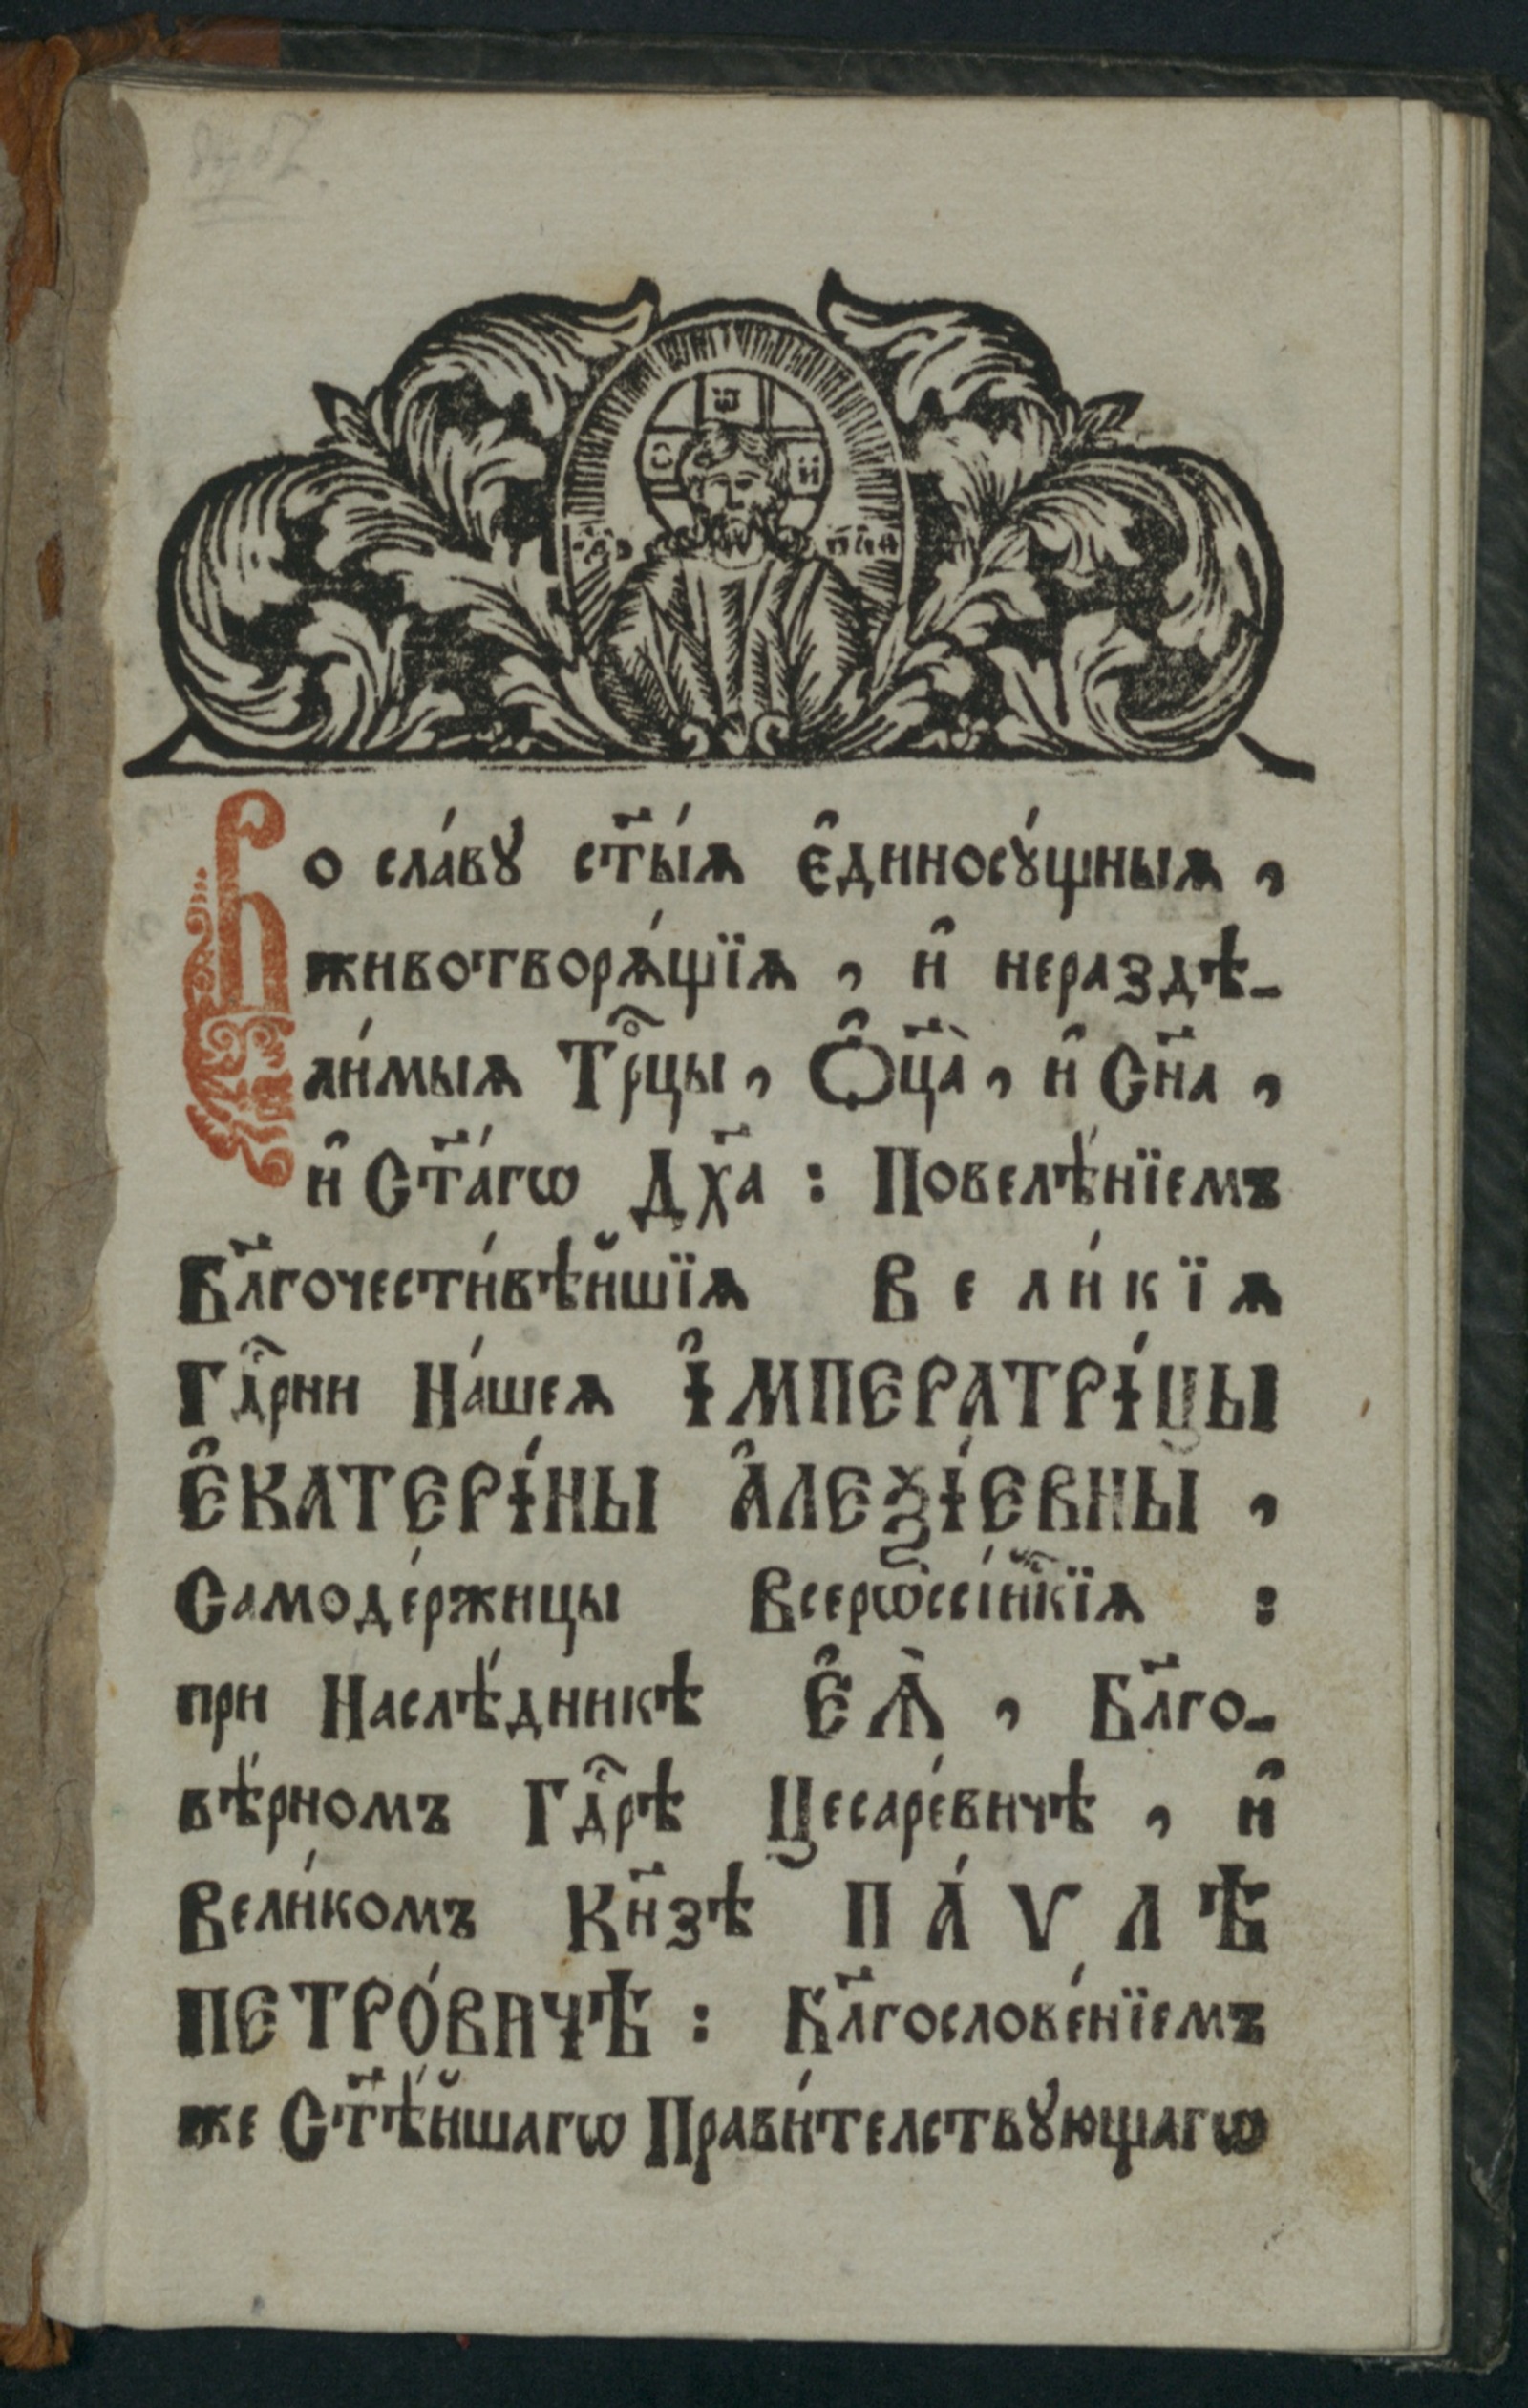 Во сла́вꙋ ст҃ы́ѧ є҆диносꙋ́щныѧ ,
животворѧ́щїѧ , и҆ нераздѣ-
ли́мыѧ Трⷪ҇цы , Ѻ҆ц҃а̀ , и҆ Сн҃а ,
и҆ Ст҃а́гѡ Дх҃а : Повелѣ́нїемъ
Бл҃гочести́вѣйшїѧ Вели́кїѧ
Гдⷭ҇рни На́шеѧ І҆МПЕРАТРІ́ЦЫ
Є҆КАТЕРІ́НЫ А҆ЛЕѮІ́ЕВНЫ ,
Самоде́ржицы Всерѡссі́йскїѧ :
при Наслѣ́дникѣ Є҆Ѧ̀ , Бл҃го-
вѣ́рномъ Гдⷭ҇рѣ Цесаре́вичѣ , и҆
Вели́комъ Кн҃зѣ ПА́ѴЛѢ
ПЕТРО́ВИЧѢ : Бл҃гослове́нїемъ
же Ст҃ѣ́йшагѡ Прави́телствꙋющагѡ